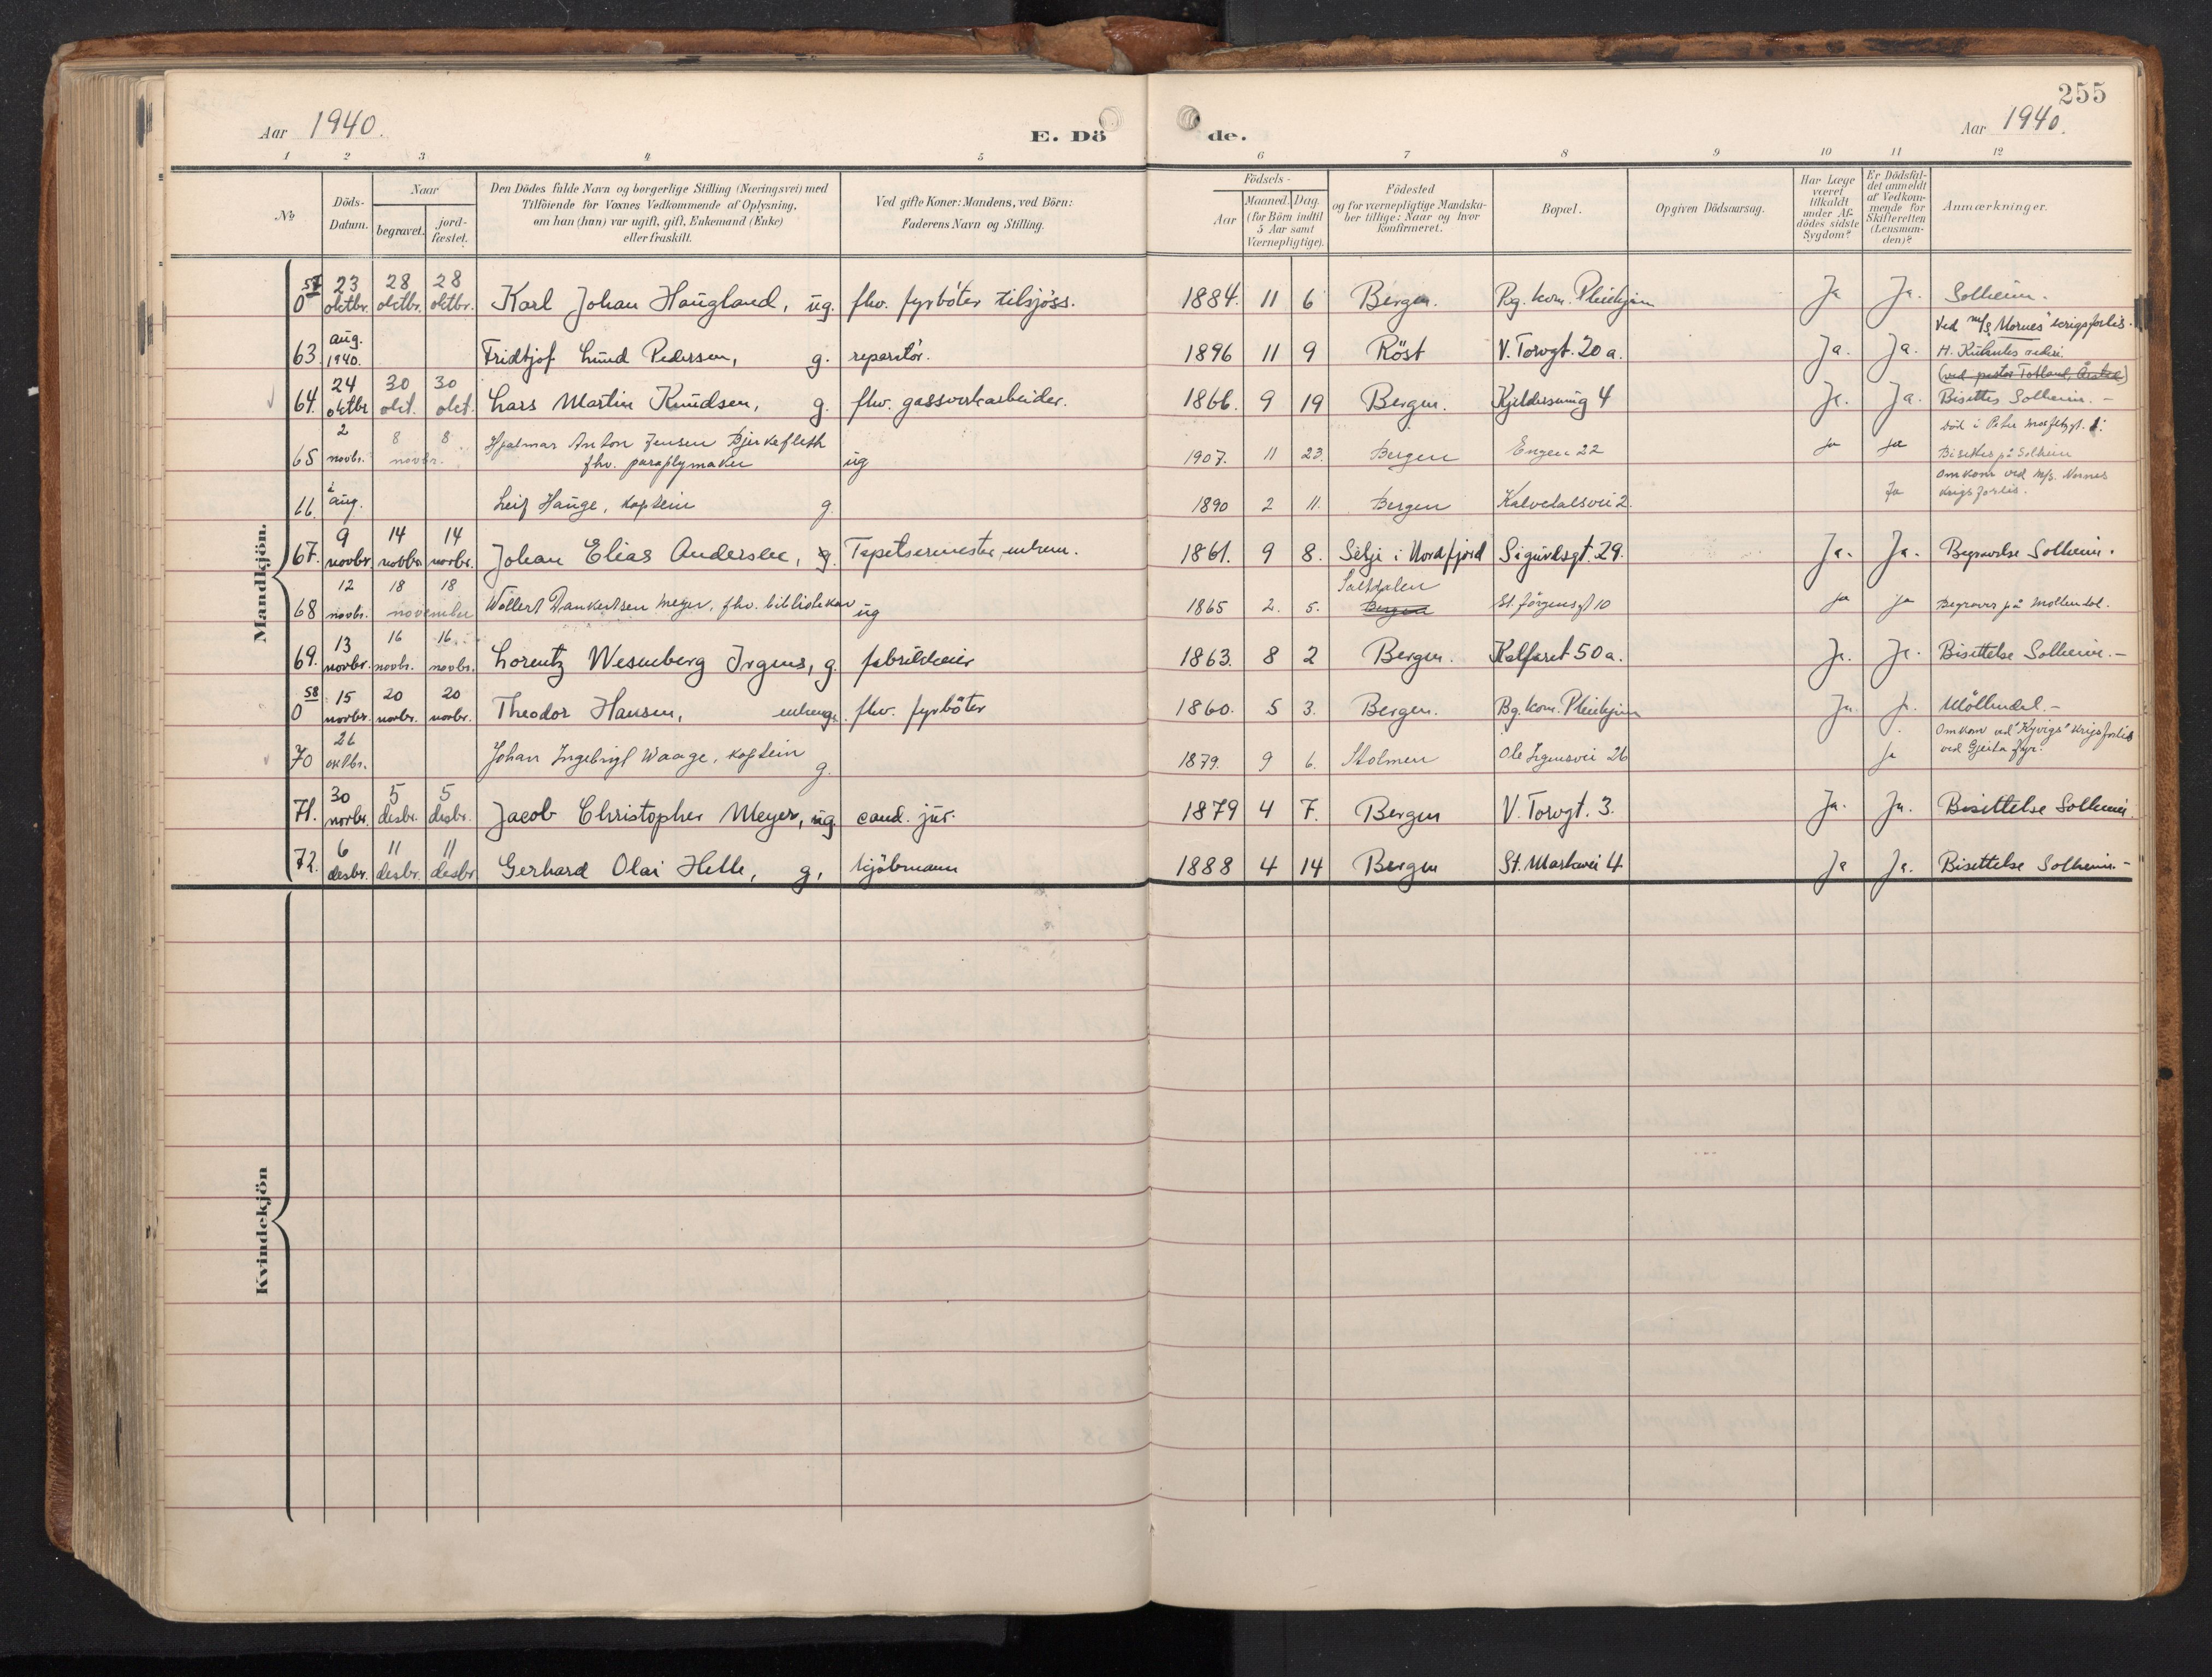 255
Aar 1940. E. Dö de. Aar 1940.
1 2 3 4 5 6 7 8 9 10 11 12
№
Döds-Datum.
Naar
begravet.
jord-fæstet.
Den Dödes fulde Navn og borgerlige Stilling (Næringsvei) med
Tilföiende for Voxnes Vedkommende af Oplysning,
om han (hun) var ugift, gift, Enkemand (Enke)
eller fraskilt.
Ved gifte Koner: Mandens, ved Börn:
Faderens Navn og Stilling.
Födsels-
Aar
Maaned. Dag.
(for Börn indtil
5 Aar samt
Værnepligtige).
Födested
og for værnepligtige Mandska-
ber tillige: Naar og hvor
Konfirmeret.
Bopæl.
Opgiven Dödsaarsag.
Har Læge
været
tilkaldt
under Af-
dödes sidste
Sygdom?
Er Dödsfal-
det anmeldt
af Vedkom-
mende for
Skifteretten
(Lensman-
den)?
Anmærkninger.
Mandkjön.
0 57 23 oktbr. 28 oktbr. 28 oktbr. Karl Johan Haugland, ug. fhv. fyrböter tilsjöss. 1884. 11 6 Bergen. Bg. kom. Pleiehjem Ja Ja. Solheim.
63. aug. 1940. Fridtjof Lund Pedersen, g. reparatör. 1896 11 9 Röst V. Torvgt. 20 a. Ja. Ja. Ved m/s "Mornes" krigsforlis.
H. rederi.
(ved pastor Totland, Årstad)
64. 24 oktbr 30 okt. 30 okt. Lars Martin Knudsen, g. fhv. gassverkarbeider. 1866. 9 19 Bergen. 4 Ja. Ja. Bisettes Solheim. –
65 2 novbr. 8 8 novbr. Hjalmar Anton Jensen Bjerkefleth
fhv. paraplymaker ug 1907. 11 23. Bergen Engen 22 ja ja död i Peter
Bisettes på Solheim
66. aug. Leif Hauge, kaptein g. 1890 2 11. Bergen Kalvedalsvei 2. Ja Omkom ved m/s. Nornes
krigsforlis.
67. 9 novbr. 14 novbr. 14 novbr. Johan Elias Andersen, g. Tapetserermester, enkem. 1861. 9 8. Selje i Nordfjord Sigurdsgt. 29. Ja. Ja. Begravelse Solheim.
68 12 novbr. 18 18 november Wollert Danckertsen Meyer, fhv. bibliotekar ug 1865 2. 5. Saltdalen
Bergen St. Jörgensgt 10 ja ja Begraves på Möllendal.
69. 13 novbr. 16 novbr. 16 novbr. Lorentz Wesenberg Irgens, g. fabrikkeier 1863. 8 2 Bergen. Kalfaret 50 a. Ja. Ja. Bisettelse Solheim. –
0 58 15 novbr. 20 novbr. 20 novbr. Theodor Hansen, enkem. fhv. fyrböter 1860. 5 3. Bergen. Bg. kom. Pleiehjem Ja. Ja. Möllendal. –
70 26 oktbr. Johan Ingebrigt Waage, kaptein g. 1879. 9 6. Stolmen Ole Irgensvei 26 Ja Omkom ved "Kyvigs" krigsforlis
ved Gjeita fyr.
71. 30 novbr. 5 desbr. 5 desbr. Jacob Christopher Meyer, ug. cand. jur. 1879 4 7. Bergen V. Torvgt. 3. Ja. Ja. Bisettelse Solheim.
72. 6 desbr. 11 desbr. 11 desbr. Gerhard Olai Helle, g, kjöbmann 1888 4 14 Bergen St. Markevei 4 Ja Ja. Bisettelse Solheim. –
Kvindekjön